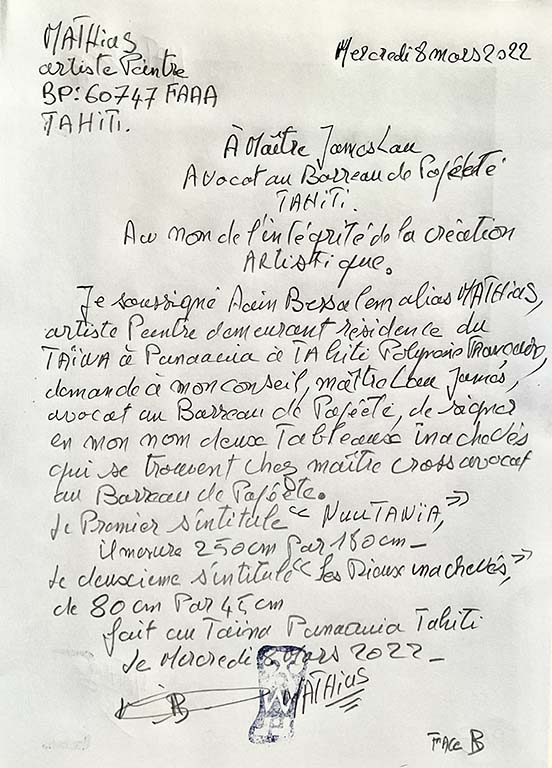 MATHias
artiste Peintre
BP: 60747 FAAA
TAHiTi.
Mercredi 8 mars 2022
À Maître James Lau
Avocat au Barreau de Papéété
TAHiTi.
Au nom de l'intégrité de la création
ARtistique.
Je soussigné Bersalem alias MATHias,
artiste Peintre demeurant résidence du
TAÏNA à Punaauia à TAhiti Polynésie
demande à mon conseil, maître Lau James,
avocat au Barreau de Papéété, de signer
en mon nom deux Tableaux inachevés
qui se trouvent chez maître cross avocat
au Barreau de Papéête.
Le Premier s'intitule "NuuTANiA,"
il mesure 250cm par 180cm_
Le deuxieme s'intitule "Les Dieux inachevés,"
de 80 cm Par 45 cm
fait au Taïna Punaauia Tahiti
Le Mercredi 8 Mars 2022_
MATHias
FAce B